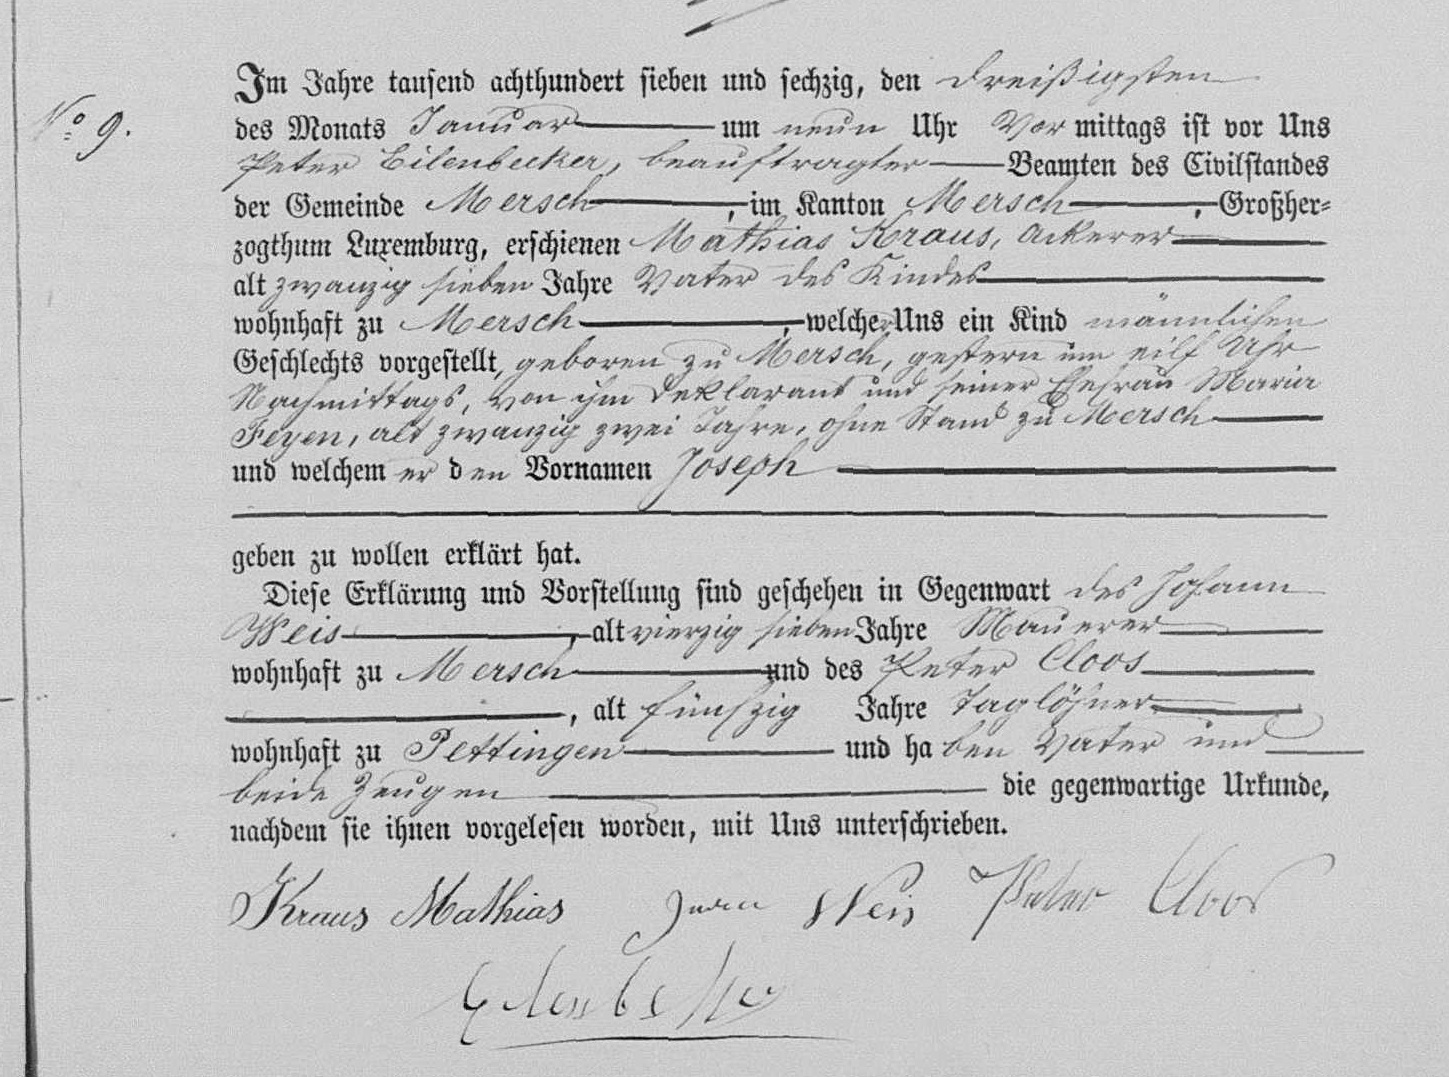 No 9.
Im Jahre tausend achthundert sieben und sechzig, den dreißigsten
des Monats Januar um neun Uhr Vormittags ist vor Uns
Peter Eilenbecker, beauftragter Beamten des Civilstandes
der Gemeinde Mersch, im Kanton Mersch, Großher=
zogthum Luxemburg, erschienen Mathias Kraus, Ackerer
alt zwanzig sieben Jahre Vater des Kindes
wohnhaft zu Mersch, welcher Uns ein Kind männlichen
Geschlechts vorgestellt, geboren zu Mersch, gestern um eilf Uhr
Nachmittags, von ihm Deklarant und seiner Ehefrau Maria
Feyen, alt zwanzig zwei Jahre, ohne Stand zu Mersch
und welchem er den Vornamen Joseph
geben zu wollen erklärt hat.
Diese Erklärung und Vorstellung sind geschehen in Gegenwart des Johann
Weis, alt vierzig sieben Jahre Mauerer
wohnhaft zu Mersch und des Peter Cloos
, alt fünfzig Jahre Taglöhner
wohnhaft zu Pettingen und haben Vater und
beide Zeugen die gegenwartige Urkunde,
nachdem sie ihnen vorgelesen worden, mit Uns unterschrieben.
Kraus Mathias Weis Peter Cloos